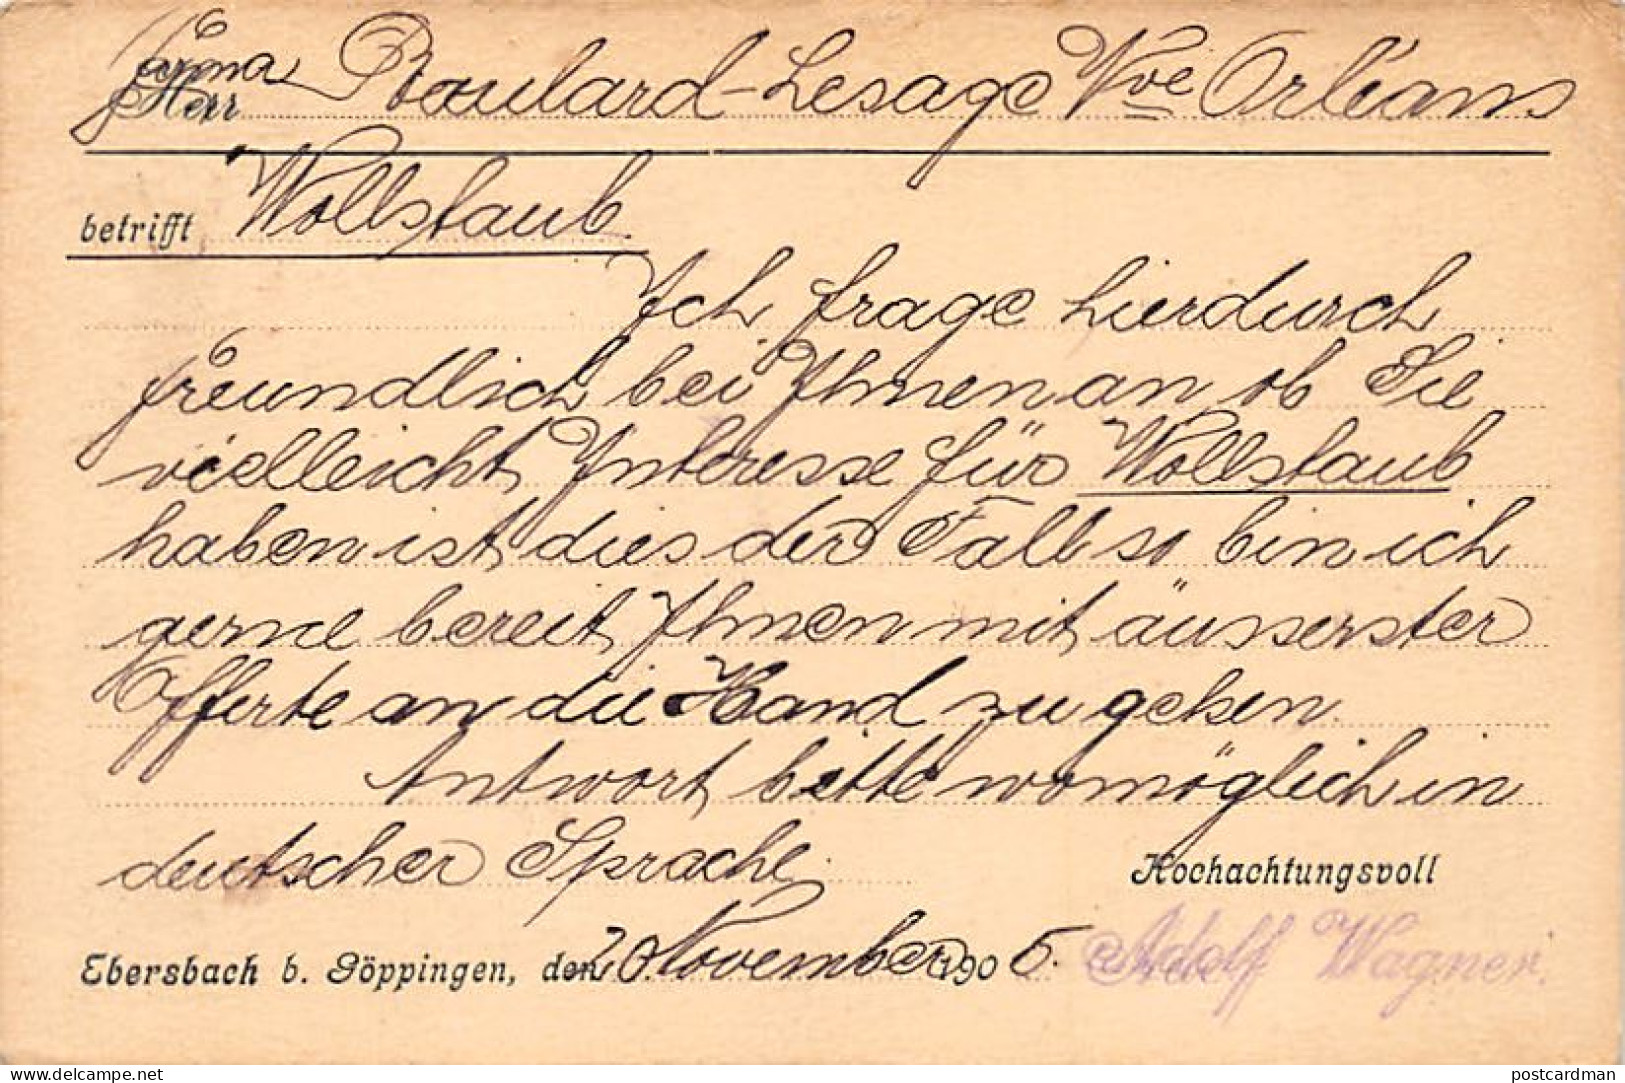 Firma
Herr Boulard-Lesage Vve Orléans
betrifft Wollstaub.
Ich frage hierdurch
freundlich bei Ihnen an ob Sie
vielleicht Interesse für Wollstaub
haben ist dies der Fall so bin ich
gerne bereit Ihnen mit äusserster
Offerte an die Hand zu gehen.
Antwort bitte womöglich in
deutscher Sprache.
Hochachtungsvoll
Ebersbach b. Göppingen, den 20. November 1905. Adolf Wagner.
delcampe.net
postcardman